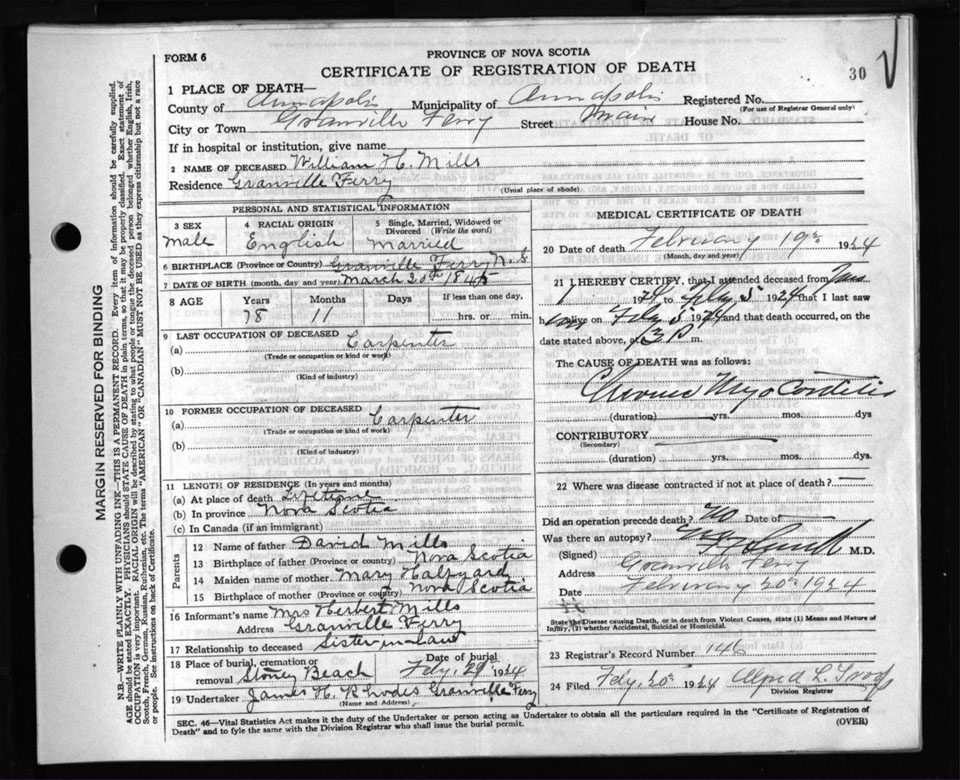 FORM 6
PROVINCE OF NOVA SCOTIA
CERTIFICATE OF REGISTRATION OF DEATH
30
1 PLACE OF DEATH—
County of Annapolis Municipality of Annapolis Registered No.
(For use of Registrar General only)
City or Town Granville Ferry Street Main House No.
If in hospital or institution, give name
2 NAME OF DECEASED William H. Mills
Residence Granville Ferry
(Usual place of abode)
PERSONAL AND STATISTICAL INFORMATION
3 SEX 4 RACIAL ORIGIN 5 Single, Married, Widowed or Divorced (Write the word)
Male English Married
6 BIRTHPLACE (Province or Country) Granville Ferry N.S
7 DATE OF BIRTH (month, day and year) March 20th 1845
8 AGE Years Months Days If less than one day,
78 11 hrs. or min.
9 LAST OCCUPATION OF DECEASED
(a) Carpenter
(Trade or occupation or kind of work)
(b)
(Kind of industry)
10 FORMER OCCUPATION OF DECEASED
(a) Carpenter
(Trade or occupation or kind of work)
(b)
(Kind of industry)
11 LENGTH OF RESIDENCE (In years and months)
(a) At place of death Lifetime
(b) In province Nova Scotia
(c) In Canada (if an immigrant)
Parents
12 Name of father David Mills
13 Birthplace of father (Province or country) Nova Scotia
14 Maiden name of mother Mary Halfyard
15 Birthplace of mother (Province or country) Nova Scotia
16 Informant's name Mrs Herbert Mills
Address Granville Ferry
17 Relationship to deceased Sister-in-law
18 Place of burial, cremation or removal Stoney Beach Date of burial 1924
19 Undertaker James H. Rhodes Granville Ferry
(Name and Address)
MEDICAL CERTIFICATE OF DEATH
20 Date of death February 19th 1924
(Month, day and year)
21 I HEREBY CERTIFY, that I attended deceased from
19 to 5 1924 that I last saw
h alive on 5 and that death occurred, on the
date stated above, at m.
The CAUSE OF DEATH was as follows:
Chronic Myo Carditis
(duration) yrs. mos. dys
CONTRIBUTORY
(Secondary)
(duration) yrs. mos. dys
22 Where was disease contracted if not at place of death? —
Did an operation precede death? no Date of —
Was there an autopsy?
(Signed) M.D.
Address Granville Ferry
Date February 20th 1924
State the Disease causing Death, or in death from Violent Causes, state (1) Means and Nature of Injury, (2) whether Accidental, Suicidal or Homicidal.
23 Registrar's Record Number 146
24 Filed Feby. 20th 1924
Division Registrar
SEC. 46—Vital Statistics Act makes it the duty of the Undertaker or person acting as Undertaker to obtain all the particulars required in the "Certificate of Registration of
Death" and to fyle the same with the Division Registrar who shall issue the burial permit. (OVER)
MARGIN RESERVED FOR BINDING
N.B.—WRITE PLAINLY WITH UNFADING INK—THIS IS A PERMANENT RECORD. Every item of information should be carefully supplied.
AGE should be stated EXACTLY. PHYSICIANS should STATE CAUSE OF DEATH in plain terms, so that it may be properly classified. Exact statement of
OCCUPATION is very important. RACIAL ORIGIN will be described by stating to what people or tongue the deceased person belonged whether English, Irish,
Scotch, French, German, Russian, Ruthenian, etc. The terms "AMERICAN" OR "CANADIAN" MUST NOT BE USED as they express citizenship but not a race
or people. See instructions on back of Certificate.